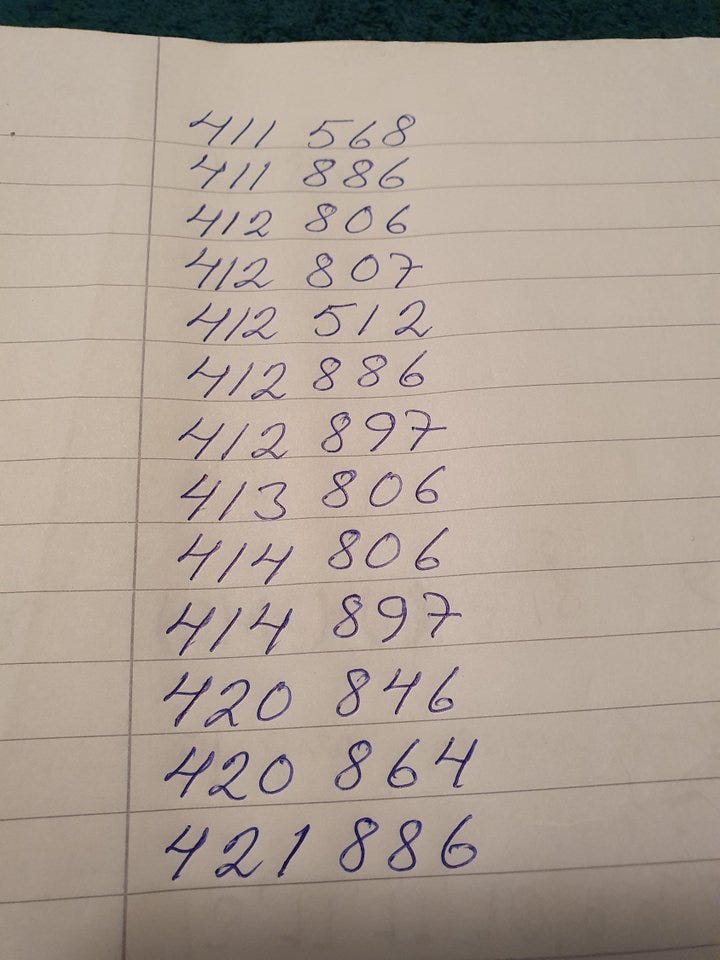 411 568
411 886
412 806
412 807
412 512
412 886
412 897
413 806
414 806
414 897
420 846
420 864
421 886